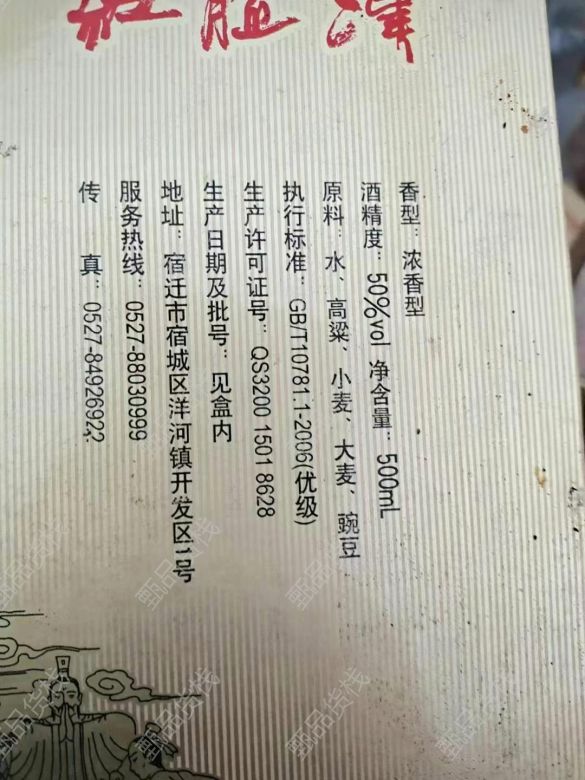 香型：浓香型
酒精度：50%vol 净含量：500mL
原料：水、高粱、小麦、大麦、豌豆
执行标准：GB/T10781.1-2006(优级)
生产许可证号：QS3200 1501 8628
生产日期及批号：见盒内
地址：宿迁市宿城区洋河镇开发区1号
服务热线：0527-88030999
传 真：0527-84926922
甄品货栈
甄品货栈
甄品货栈
甄品货栈
甄品货栈
甄品货栈